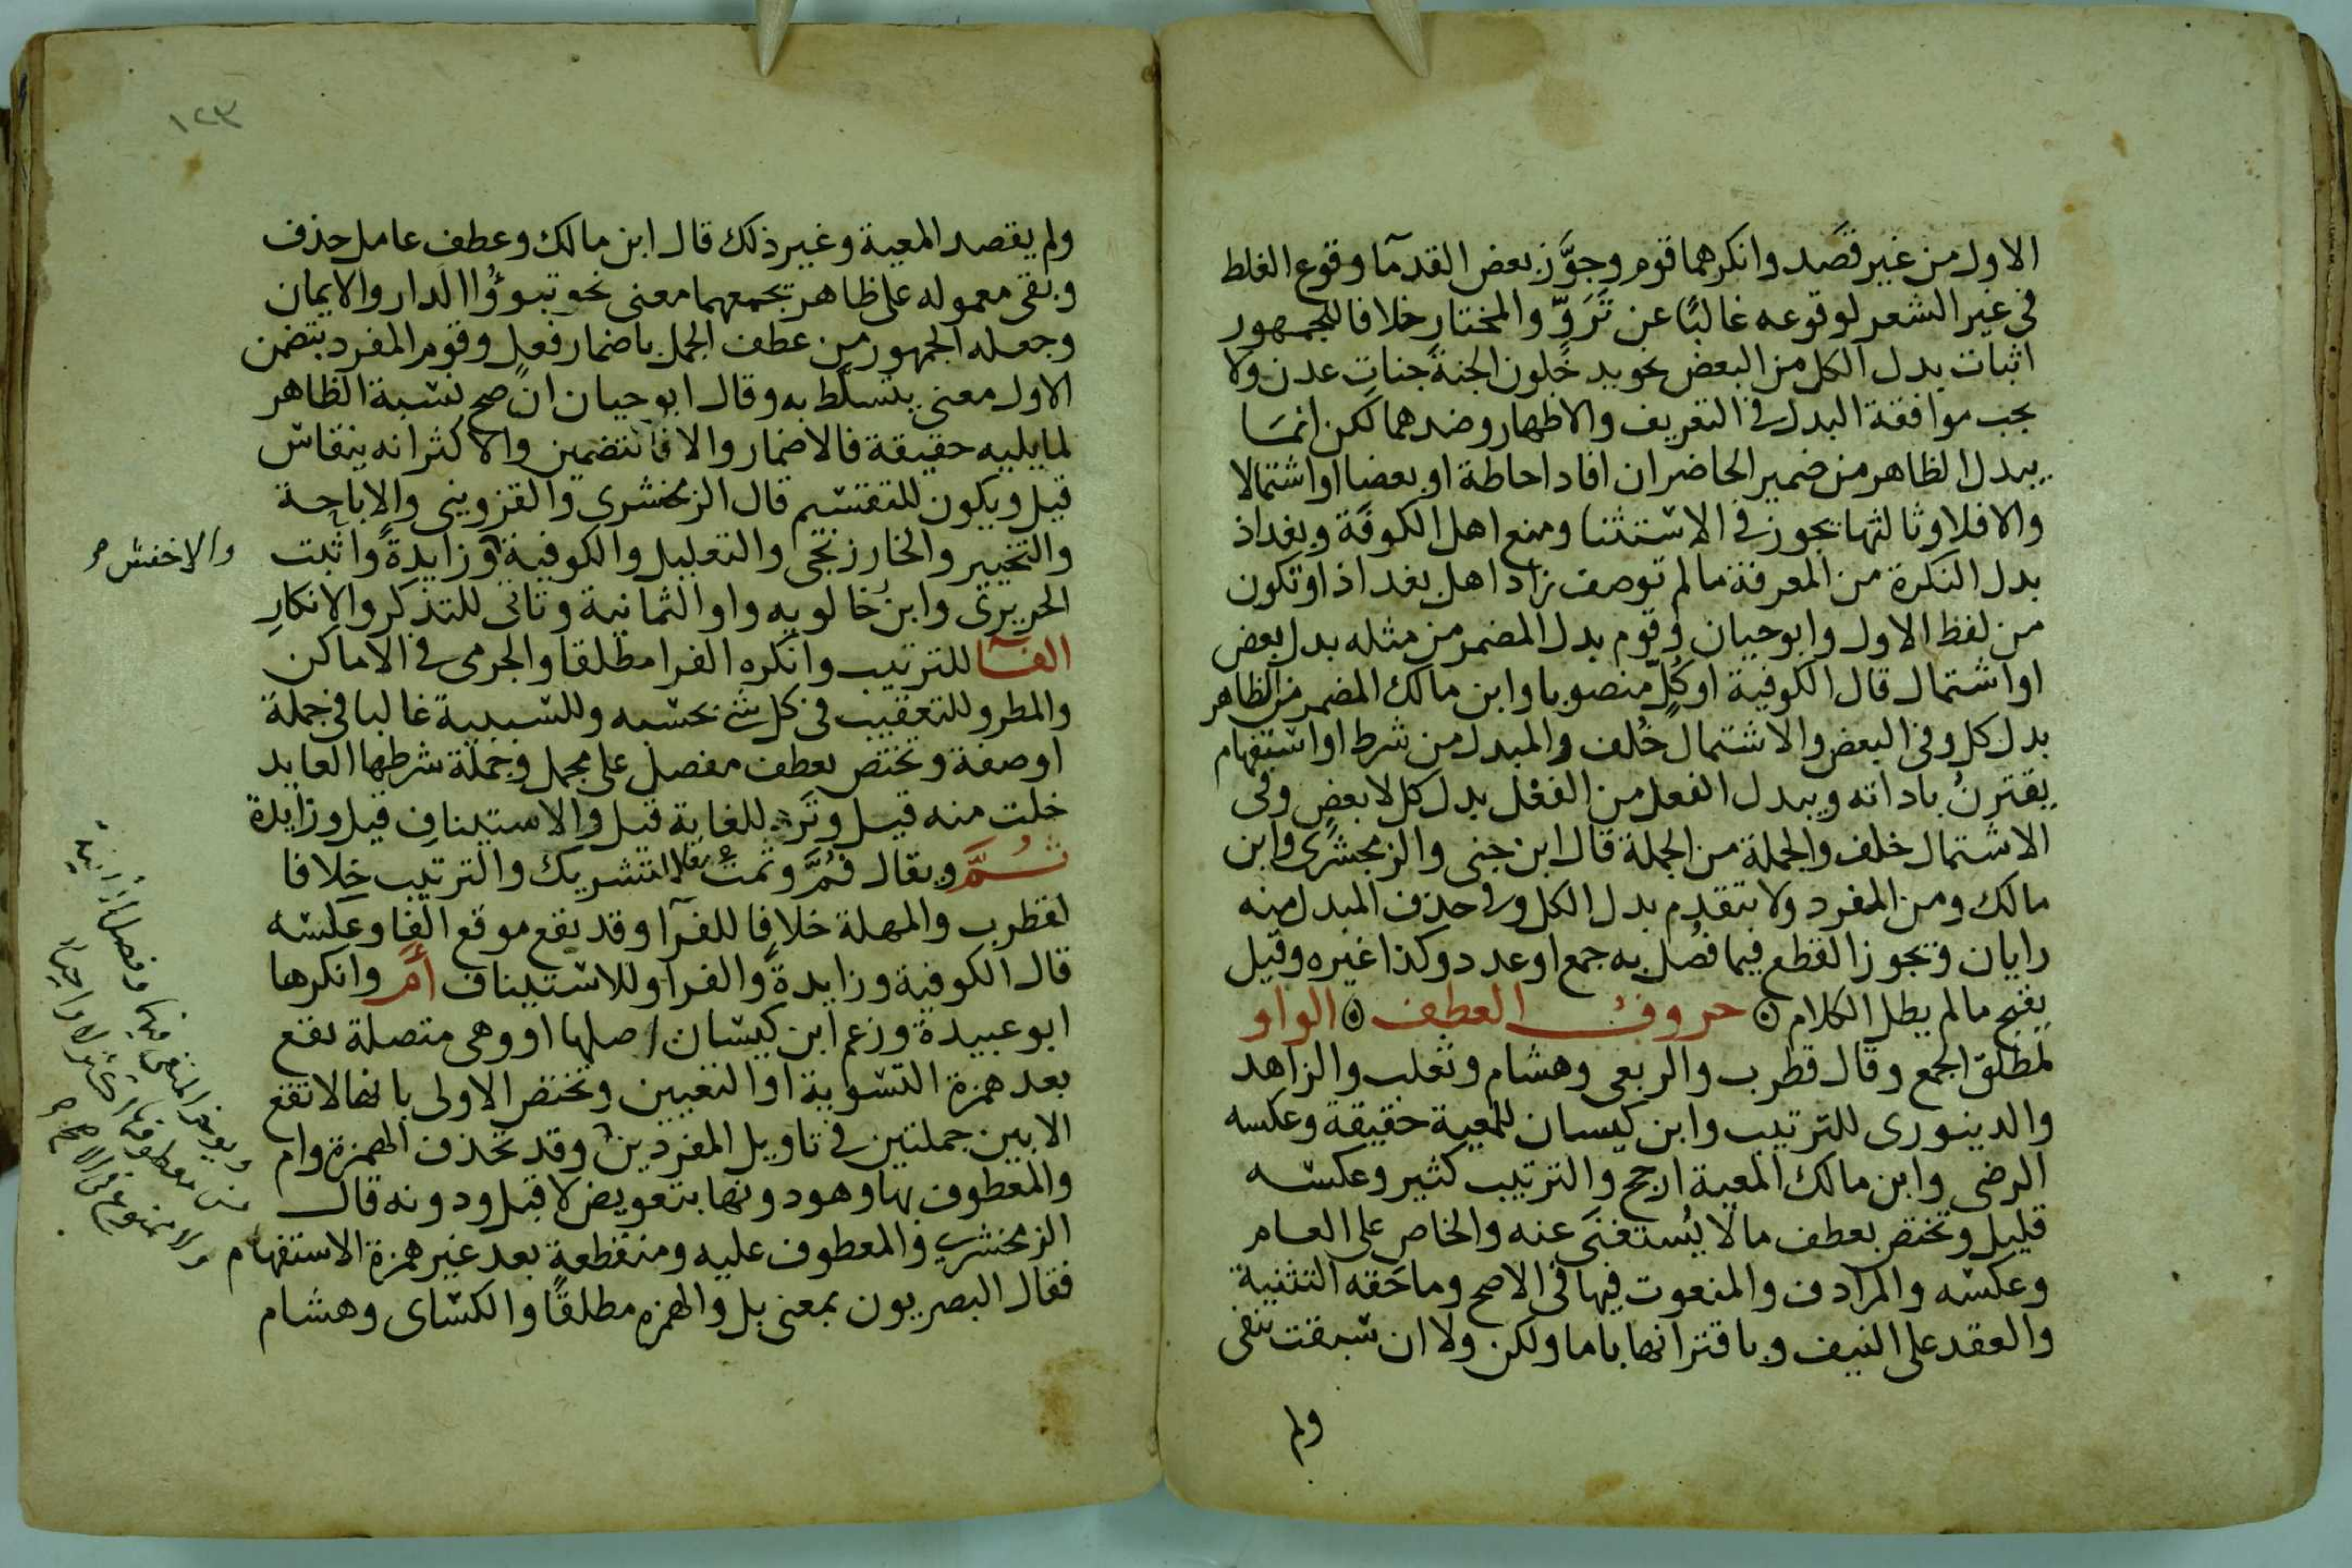 الاول من غير قصد وانكرهما قوم وجوَّز بعض القدمآ وقوع الغلط
في غير الشعر لوقوعه غالبًا عن تَرَوٍّ والمختار خلافا للجمهور
اثبات بدل الكل من البعض نحو يدخلون الجنة جناتِ عدن ولا
يجب موافقة البدل في التعريف والاظهار وضدهما لكن انما
يبدل الظاهر من ضمير الحاضر ان افاد احاطة او بعضا او اشتمالا
والا فلا وثالثها يجوز في الاستثنا ومنع اهل الكوفة وبغداذ
بدل النكرة من المعرفة ما لم توصف زاد اهل بغداذ او تكون
من لفظ الاول وابوحيان وقوم بدل المضمر من مثله بدل بعض
او اشتمال قال الكوفية او كلٍّ منصوبا وابن مالك المضمر من الظاهر
بدل كل وفي البعض والاشتمال خُلف والمبدل من شرط او استفهام
يقترنُ باداته ويبدل الفعل من الفعل بدل كل لا بعضٍ وفي
الاشتمال خلف والجملة من الجملة قال ابن جنى والزمخشرى وابن
مالك ومن المفرد ولا يتقدم بدل الكل وفى حذف المبدل منه
رايان ويجوز القطع فيما فُصل به جمع او عدد وكذا غيره وقيل
يقبح مالم يطل الكلام ۞ حروف العطف ۞ الواو
لمطلق الجمع وقال قطرب والربعى وهشام وثعلب والزاهد
والدينورى للترتيب وابن كيسان للمعية حقيقة وعكسه
الرضى وابن مالك المعية ارجح والترتيب كثير وعكسه
قليل وتختص بعطف مالا يُستغنَى عنه والخاص على العام
وعكسه والمرادف والمنعوت فيها في الاصح وما حَقه التثنية
والعقد على النيف وباقترانها باما ولكن ولا ان سبقت بنفى
ولم
١٢٣
ولم يقصد المعية وغير ذلك قال ابن مالك وعطف عامل حذف
وبقى معموله على ظاهر يجمعهما معنى نحو تبوؤُا الدار والايمان
وجعله الجمهور من عطف الجمل باضمار فعل وقوم المفرد بتضمن
الاول معنى يتسلط به وقال ابوحيان ان صح نسبة الظاهر
لما يليه حقيقة فالاضمار والا فالتضمين والاكثر انه ينقاس
قيل ويكون للتقسيم قال الزمخشرى والقزوينى والاباحة
والتخيير والخارزنجى والتعليل والكوفية وزايدةً واثبت
والاخفش صح
الحريرى وابن خالويه واو الثمانية وتاتى للتذكر والانكارِ
الفآ للترتيب وانكره الفرا مطلقا والجرمى في الاماكن
والمطر وللتعقيب في كل شئ بحسبه وللسببية غالبا في جملة
اوصفة وتختص بعطف مفصل على مجمل وجملة شرطها العايد
خلت منه قيل وتَرِد للغاية قيل والاستينافِ قيل وزايدة
ثُمَّ ويقال فُمَّ وثمت للتشريك والترتيب خلافا
لقطرب والمهلة خلافا للفرآ وقد تقع موقع الفا وعكسه
قال الكوفية وزايدةً والفرا وللاستيناف أَمْ وانكرها
ابوعبيدة وزعم ابن كيسان اصلها او وهى متصلة تقع
بعد همزة التسوية او التعيين وتختص الاولى بانها لا تقع
الا بين جملتين في تاويل المفردين وقد تحذف الهمزة وام
والمعطوف بها وهو دونها بتعويض لا قيل ودونه قال
الزمخشري والمعطوف عليه ومنقطعة بعد غير همزة الاستفهام
فقال البصريون بمعنى بل والهمزه مطلقًا والكساى وهشام